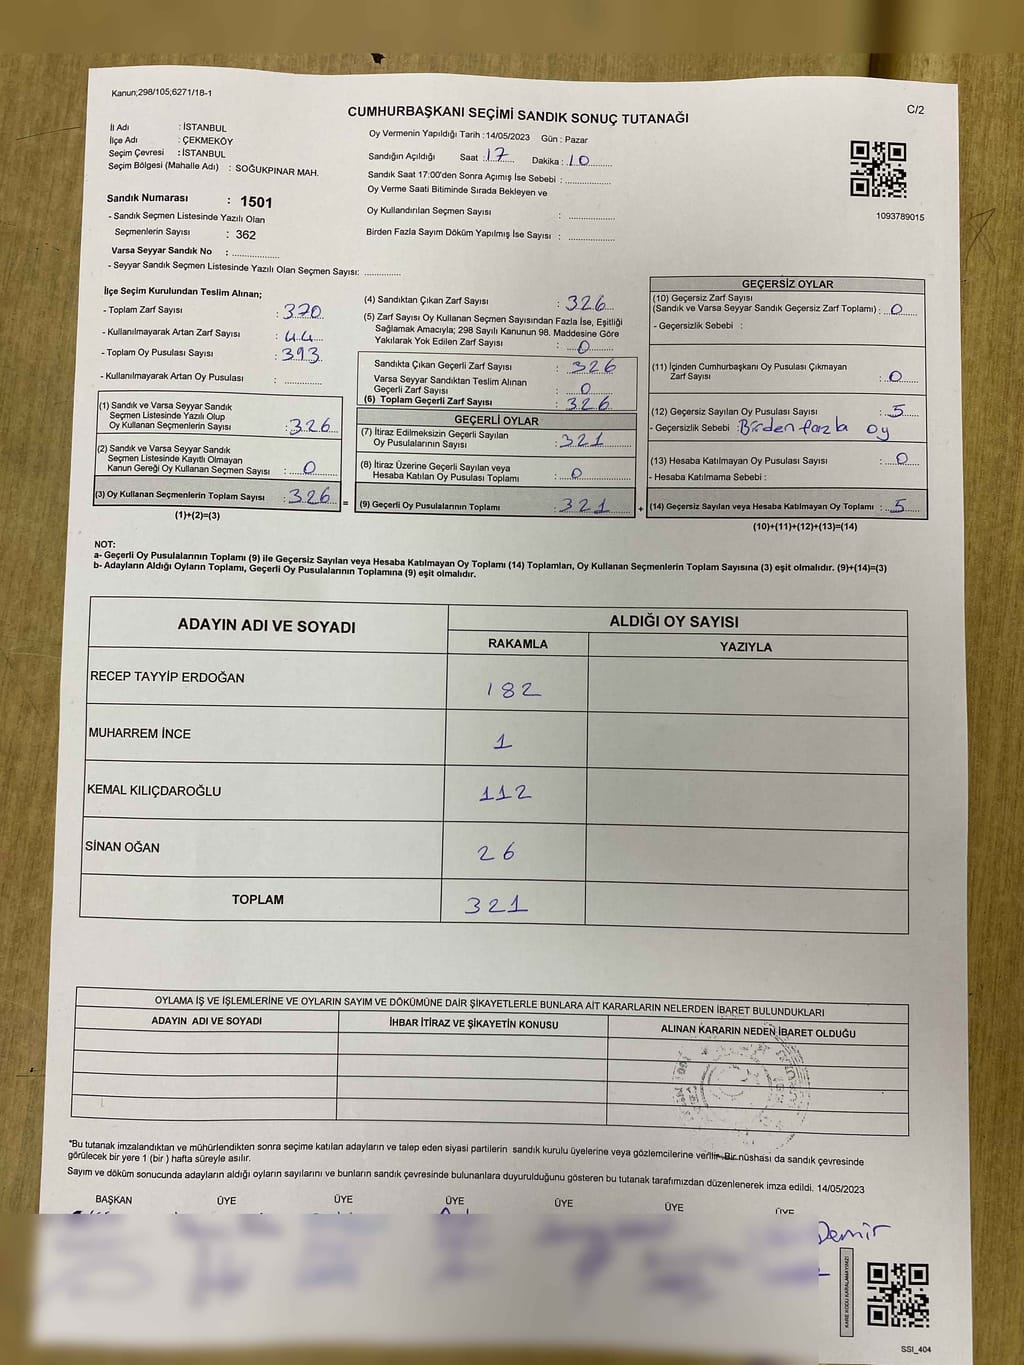 Kanun;298/105;6271/18-1
C/2
CUMHURBAŞKANI SEÇİMİ SANDIK SONUÇ TUTANAĞI
İl Adı : İSTANBUL
İlçe Adı : ÇEKMEKÖY
Seçim Çevresi : İSTANBUL
Seçim Bölgesi (Mahalle Adı) : SOĞUKPINAR MAH.
Sandık Numarası : 1501
- Sandık Seçmen Listesinde Yazılı Olan
Seçmenlerin Sayısı : 362
Varsa Seyyar Sandık No : ..............
- Seyyar Sandık Seçmen Listesinde Yazılı Olan Seçmen Sayısı: ............
Oy Vermenin Yapıldığı Tarih : 14/05/2023 Gün : Pazar
Sandığın Açıldığı Saat : 17 Dakika : 10
Sandık Saat 17:00'den Sonra Açımış İse Sebebi : ..............
Oy Verme Saati Bitiminde Sırada Bekleyen ve
Oy Kullandırılan Seçmen Sayısı : ..............
Birden Fazla Sayım Döküm Yapılmış İse Sayısı : ..............
1093789015
İlçe Seçim Kurulundan Teslim Alınan;
- Toplam Zarf Sayısı : 370
- Kullanılmayarak Artan Zarf Sayısı : 44
- Toplam Oy Pusulası Sayısı : 393
- Kullanılmayarak Artan Oy Pusulası : ............
(1) Sandık ve Varsa Seyyar Sandık
Seçmen Listesinde Yazılı Olup
Oy Kullanan Seçmenlerin Sayısı : 326
(2) Sandık ve Varsa Seyyar Sandık
Seçmen Listesinde Kayıtlı Olmayan
Kanun Gereği Oy Kullanan Seçmen Sayısı : 0
(3) Oy Kullanan Seçmenlerin Toplam Sayısı : 326 =
(1)+(2)=(3)
(4) Sandıktan Çıkan Zarf Sayısı : 326
(5) Zarf Sayısı Oy Kullanan Seçmen Sayısından Fazla İse, Eşitliği
Sağlamak Amacıyla; 298 Sayılı Kanunun 98. Maddesine Göre
Yakılarak Yok Edilen Zarf Sayısı : 0
Sandıkta Çıkan Geçerli Zarf Sayısı : 326
Varsa Seyyar Sandıktan Teslim Alınan
Geçerli Zarf Sayısı : 0
(6) Toplam Geçerli Zarf Sayısı : 326
GEÇERLİ OYLAR
(7) İtiraz Edilmeksizin Geçerli Sayılan
Oy Pusulalarının Sayısı : 321
(8) İtiraz Üzerine Geçerli Sayılan veya
Hesaba Katılan Oy Pusulası Toplamı : 0
(9) Geçerli Oy Pusulalarının Toplamı : 321 +
GEÇERSİZ OYLAR
(10) Geçersiz Zarf Sayısı
(Sandık ve Varsa Seyyar Sandık Geçersiz Zarf Toplamı) : 0
- Geçersizlik Sebebi :
(11) İçinden Cumhurbaşkanı Oy Pusulası Çıkmayan
Zarf Sayısı : 0
(12) Geçersiz Sayılan Oy Pusulası Sayısı : 5
- Geçersizlik Sebebi : Birden fazla oy
(13) Hesaba Katılmayan Oy Pusulası Sayısı : 0
- Hesaba Katılmama Sebebi :
(14) Geçersiz Sayılan veya Hesaba Katılmayan Oy Toplamı : 5
(10)+(11)+(12)+(13)=(14)
NOT:
a- Geçerli Oy Pusulalarının Toplamı (9) ile Geçersiz Sayılan veya Hesaba Katılmayan Oy Toplamı (14) Toplamları, Oy Kullanan Seçmenlerin Toplam Sayısına (3) eşit olmalıdır. (9)+(14)=(3)
b- Adayların Aldığı Oyların Toplamı, Geçerli Oy Pusulalarının Toplamına (9) eşit olmalıdır.
ADAYIN ADI VE SOYADI
ALDIĞI OY SAYISI
RAKAMLA YAZIYLA
RECEP TAYYİP ERDOĞAN 182
MUHARREM İNCE 1
KEMAL KILIÇDAROĞLU 112
SİNAN OĞAN 26
TOPLAM 321
OYLAMA İŞ VE İŞLEMLERİNE VE OYLARIN SAYIM VE DÖKÜMÜNE DAİR ŞİKAYETLERLE BUNLARA AİT KARARLARIN NELERDEN İBARET BULUNDUKLARI
ADAYIN ADI VE SOYADI İHBAR İTİRAZ VE ŞİKAYETİN KONUSU ALINAN KARARIN NEDEN İBARET OLDUĞU
*Bu tutanak imzalandıktan ve mühürlendikten sonra seçime katılan adayların ve talep eden siyasi partilerin sandık kurulu üyelerine veya gözlemcilerine verilir. Bir nüshası da sandık çevresinde
görülecek bir yere 1 (bir ) hafta süreyle asılır.
Sayım ve döküm sonucunda adayların aldığı oyların sayılarını ve bunların sandık çevresinde bulunanlara duyurulduğunu gösteren bu tutanak tarafımızdan düzenlenerek imza edildi. 14/05/2023
BAŞKAN ÜYE ÜYE ÜYE ÜYE ÜYE ÜYE
Demir
KARE KODU KARALAMAYINIZ!
SSI_404